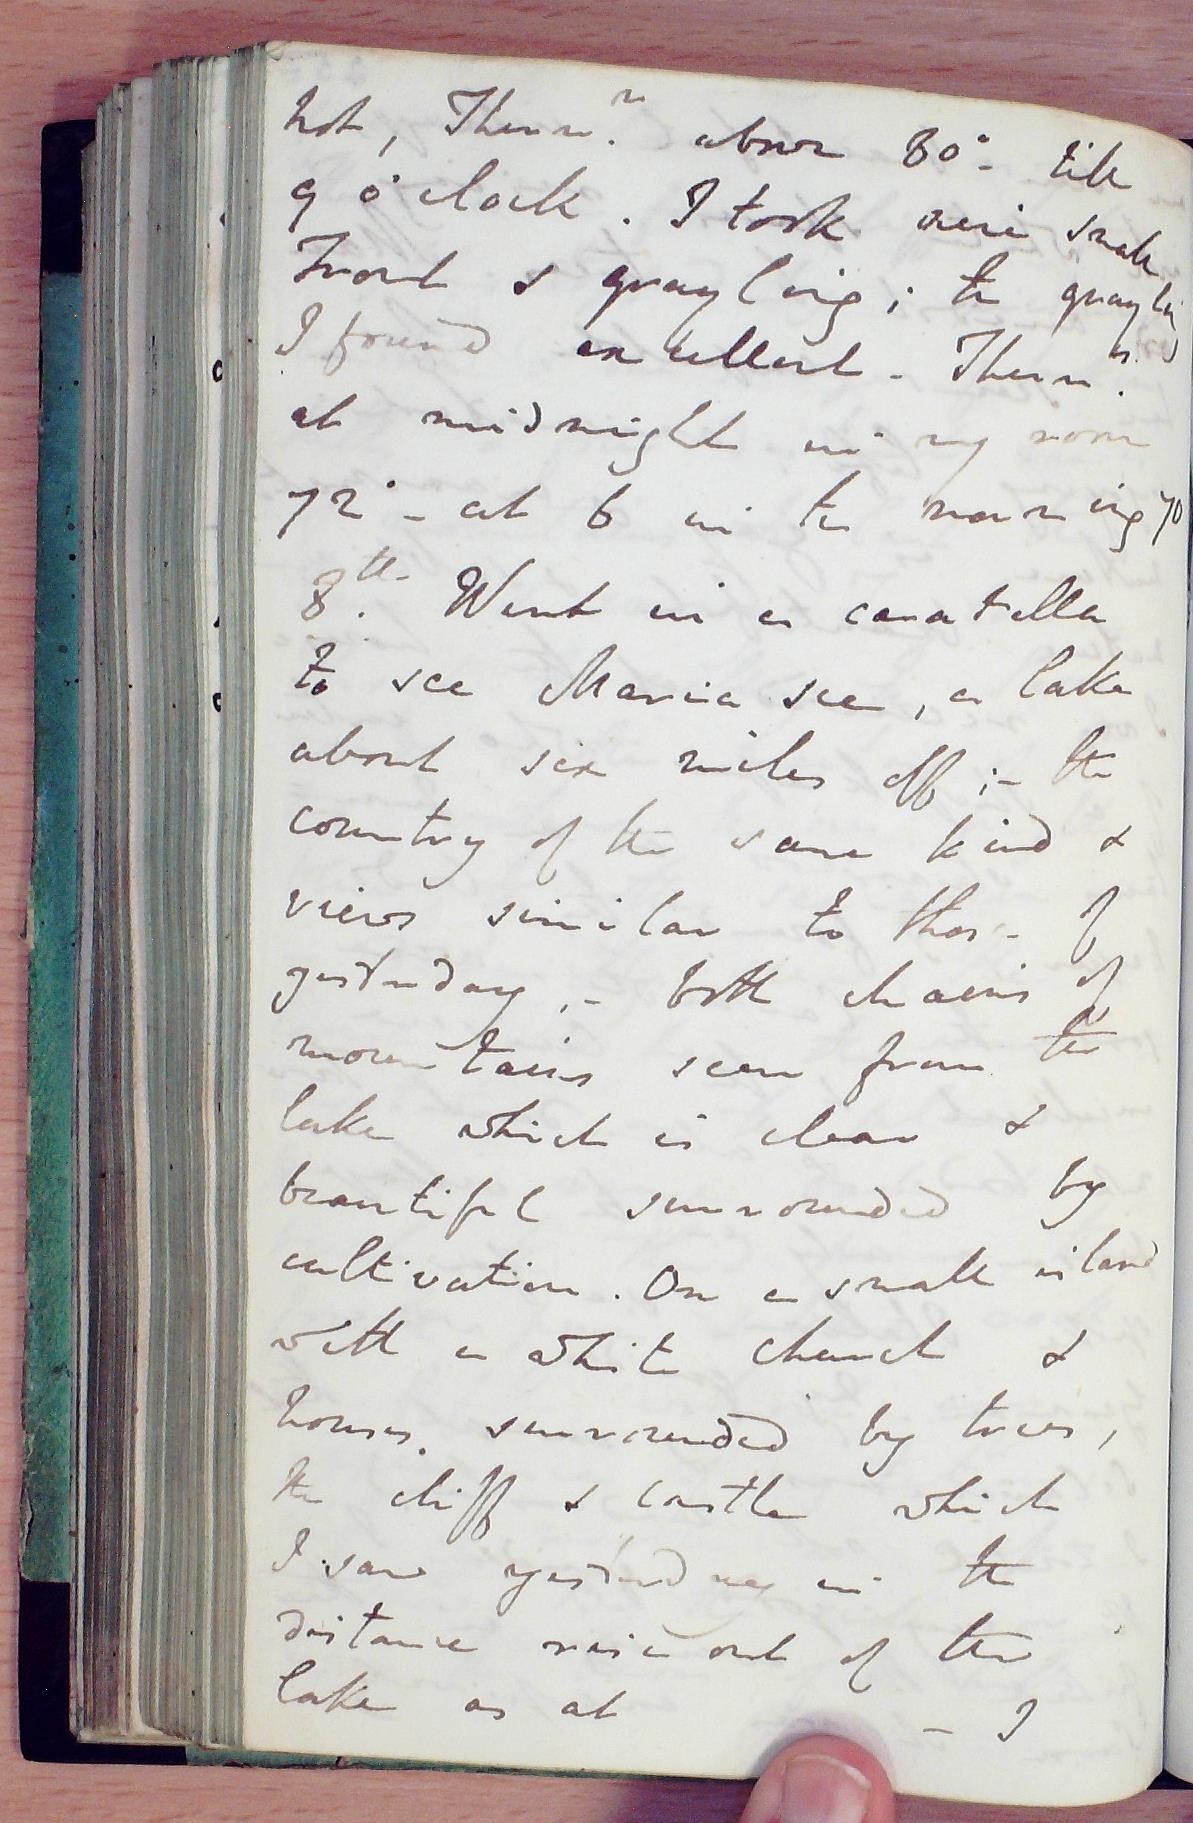 hot, Therm.r above 80°- till
9 o'clock. I took nine small
Trout & grayling; the grayling
I found excellent - Therm.r
at midnight in my room
72° - at 6 in the morning 70
8th. Went in a caratella
to see Maria see, a lake
about six miles off ;- the
country of the same kind &
views similar to those of
yesterday ,- both chains of
mountains seen from the
lake which is clear &
beautiful surrounded by
cultivation. On a small island
with a white church &
houses surrounded by trees,
the cliff & castle which
I saw yesterday in the
distance rise out of the
lake as at - I